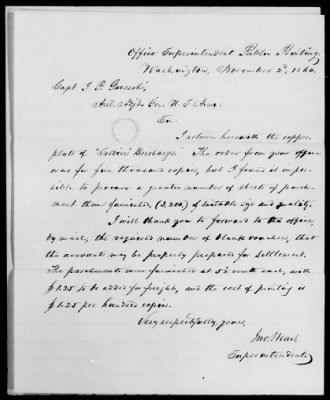 Office Superintendent Public Printing,
Washington, November 2d, 1860.
Capt. J. P. Garesché,
Asst. Adjt. Gen. U. S. Army.
Sir
I return herewith the copper-
plate of "Soldiers' Discharge." The order from your office
was for five thousand copies, but I found it impos-
sible to procure a greater number of sheets of parch-
ment than furnished, (3,200,) of suitable size and quality.
I will thank you to forward to this office,
by mail, the required number of blank vouchers, that
the account may be properly prepared for settlement.
The parchments were furnished at 5½ cents each, with
$1.25 to be added for freight, and the cost of printing is
$1.25 per hundred copies.
Very respectfully, yours,
Jno. Heart
Superintendent